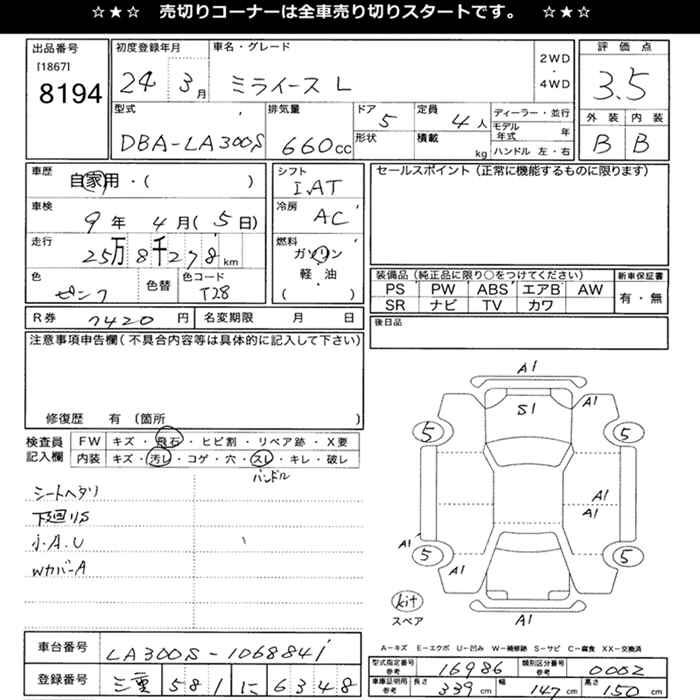 ☆★☆ 売切りコーナーは全車売り切りスタートです。 ☆★☆
出品番号
[1867]
8194
初度登録年月
24 3月
車名・グレード
ミライース L
2WD
・
4WD
評価点
3.5
型式
DBA-LA300S
排気量
660cc
ドア
5
定員
4人
ディーラー・並行
モデル年式 年
形状
積載 kg
ハンドル 左・右
外装 内装
B B
車歴
自家用・( )
シフト
IAT
セールスポイント (正常に機能するものに限ります)
車検
9年 4月(5日)
冷房
AC
走行
25万8千278km
燃料
ガソリン
・
軽油
・
( )
色
ピンク
色替
色コード
T28
装備品 (純正品に限り○をつけてください)
PS PW ABS エアB AW
SR ナビ TV カワ
新車保証書
有・無
R券 7420円
名変期限 月 日
後日品
注意事項申告欄 (不具合内容等は具体的に記入して下さい)
修復歴 有 (箇所 )
検査員記入欄
FW キズ・飛石・ヒビ割・リペア跡・X要
内装 キズ・汚レ・コゲ・穴・スレ・キレ・破レ
ハンドル
シートヘタリ
下廻りS
小A.U
WカバーA
A1
S1
A1
5
5
A1
A1
A1
5
5
A1
kit
スペア
A1
A-キズ E-エクボ U-凹み W-補修跡 S-サビ C-腐食 XX-交換済
車台番号
LA300S-1068841
登録番号
三重 581 に 6348
型式指定番号 参考
16986
類別区分番号 参考
0002
車庫証明用 参考
長さ 339cm
幅 147cm
高さ 150cm